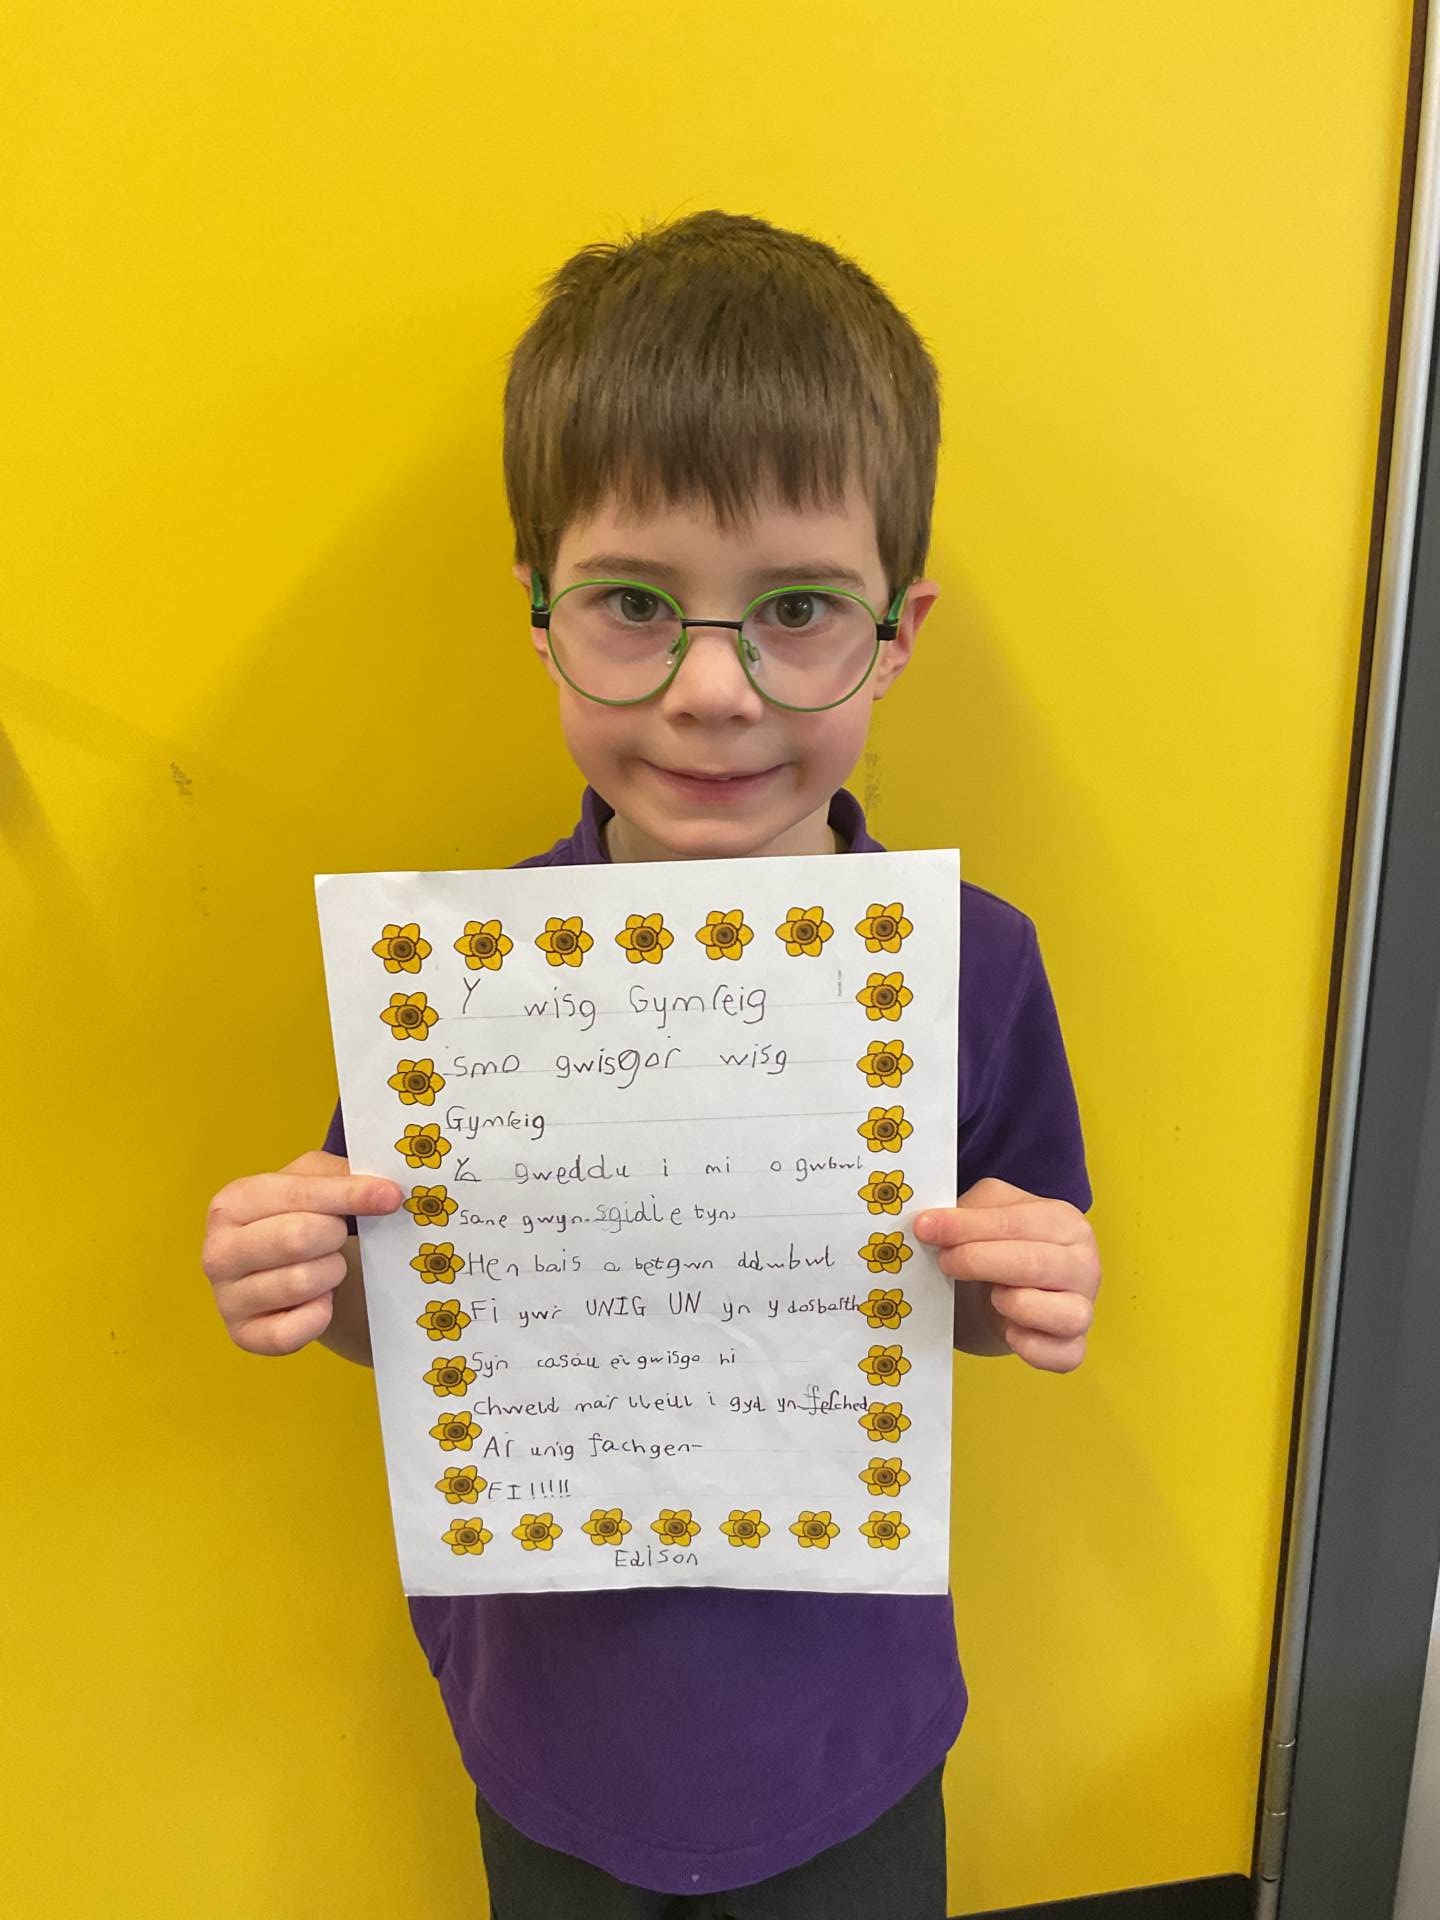 Y wisg Gymreig
Smo gwisgo'r wisg
Gymreig
Yn gweddu i mi o gwbwl
Sane gwyn. Sgidie tyn,
Hen bais a betgwn ddwbwl
Fi yw'r UNIG UN yn y dosbarth
Sy'n casáu ei gwisgo hi
Chweld ma'r lleill i gyd yn ferched
A'r unig fachgen-
FI!!!!!
Edison